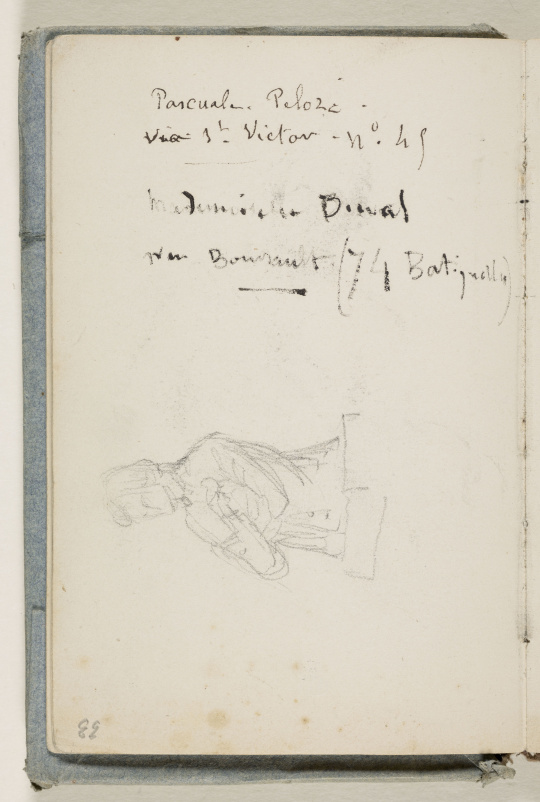 Pascuale Pelozé.
via St Victor - No. 45
Mademoiselle Duval
rue Boursault (74 Batignolles)
82